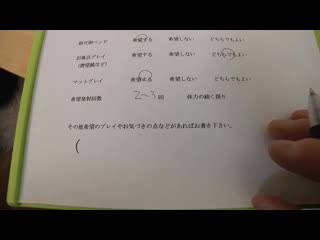 希望する 希望しない どちらでもよい
お風呂プレイ 希望する 希望しない どちらでもよい
マットプレイ 希望する 希望しない どちらでもよい
希望発射回数 2〜3回 体力の続く限り
その他希望のプレイやお気づきの点などがあればお書き下さい。
(